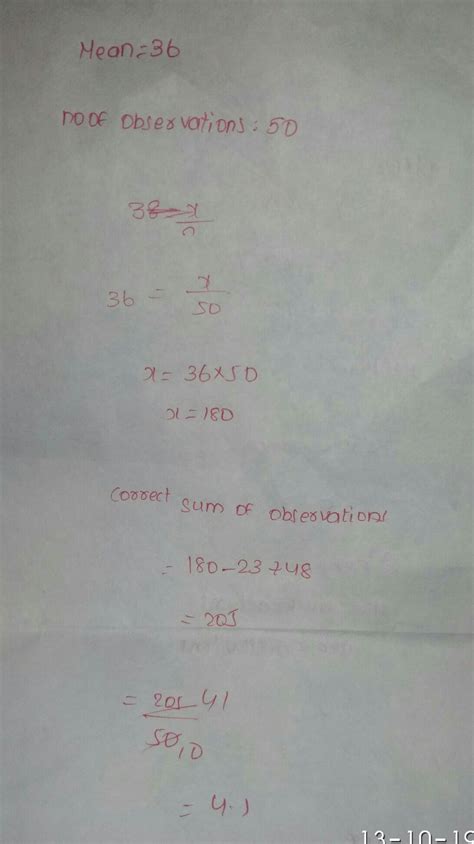 Mean=36
no of observations: 50
38=x
n
36 = x
50
x= 36x50
x=180
correct sum of observations
= 180-23+48
= 205
= 205 41
50 10
= 4.1
13-10-19